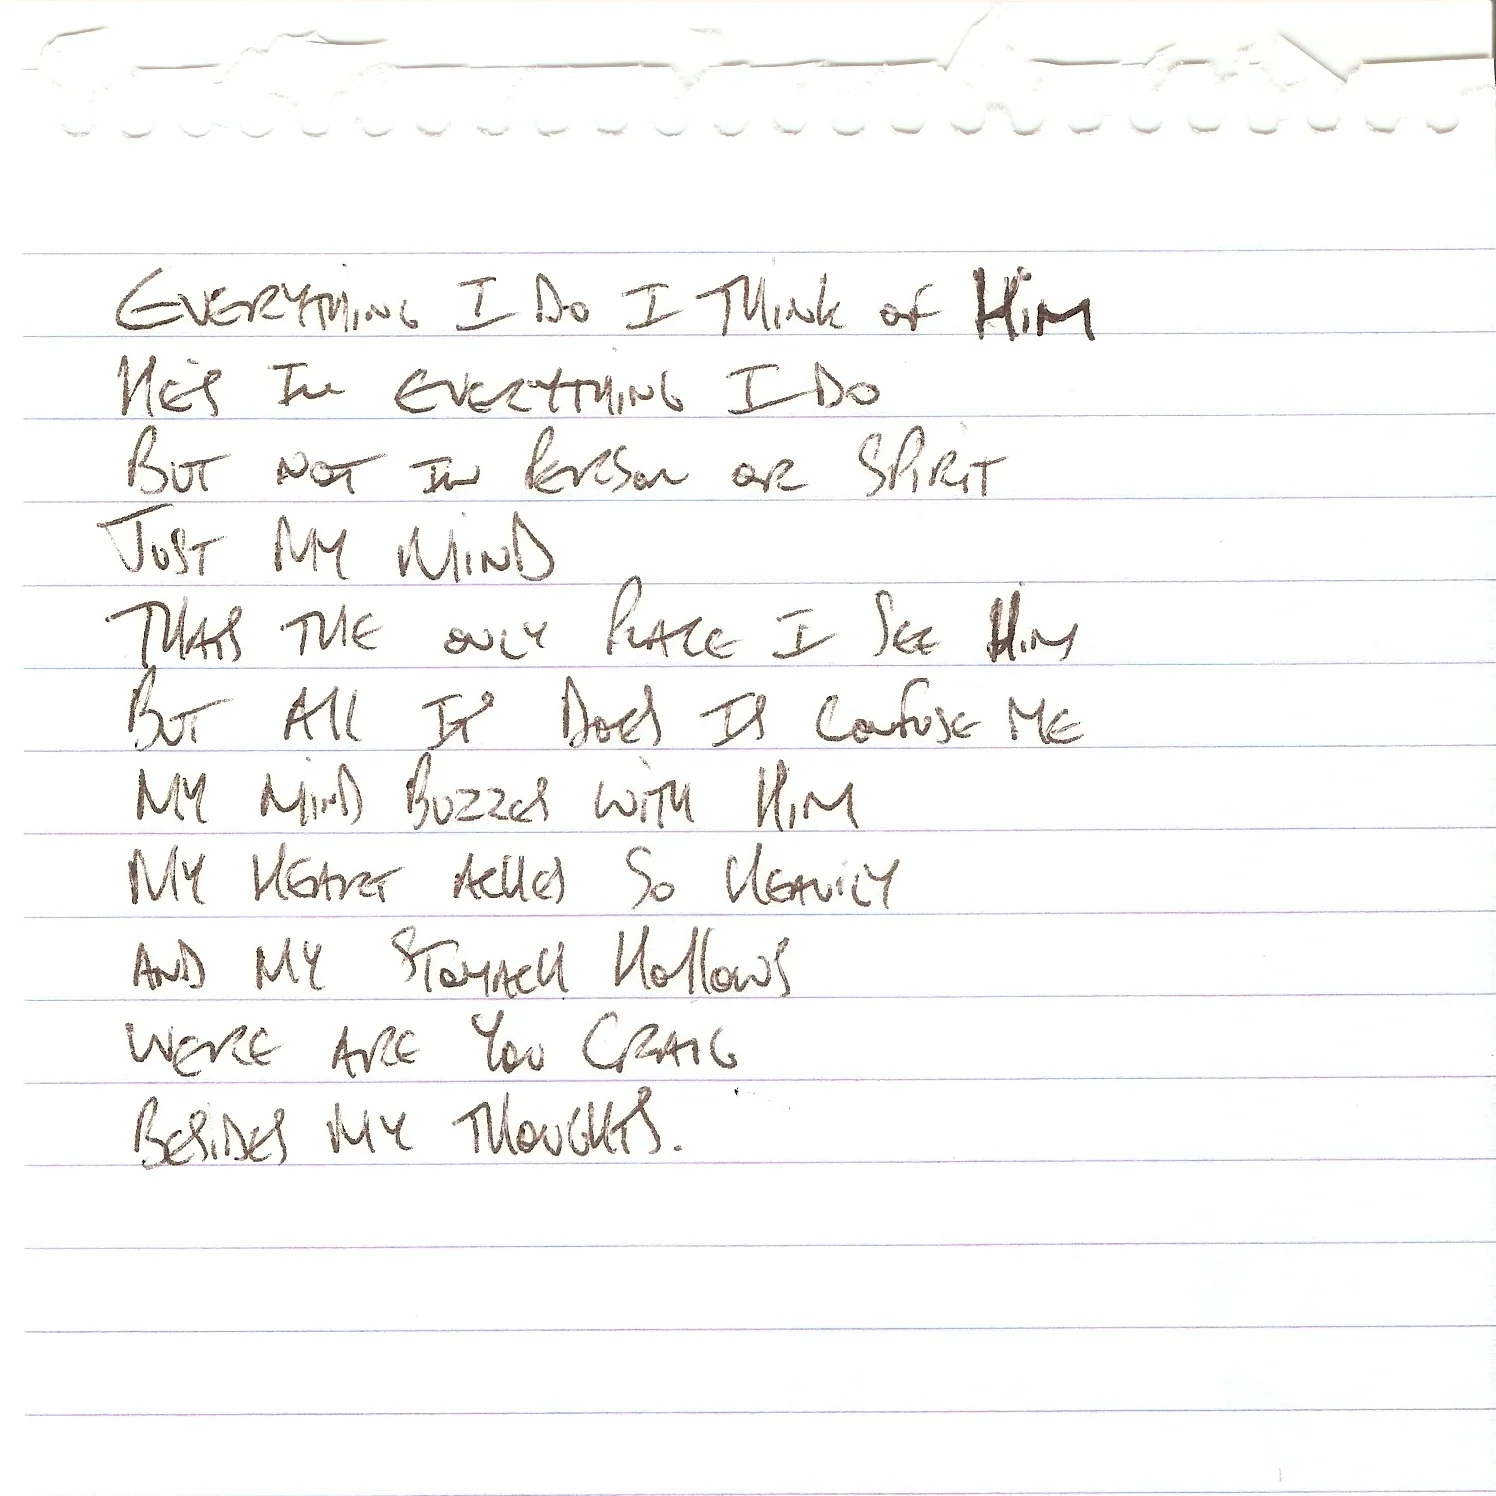 EVERYTHING I DO I THINK OF HIM
HE'S IN EVERYTHING I DO
BUT NOT IN PERSON OR SPIRIT
JUST MY MIND
THATS THE ONLY PLACE I SEE HIM
BUT ALL IT DOES IS CONFUSE ME
MY MIND BUZZES WITH HIM
MY HEART ACHES SO HEAVILY
AND MY STOMACH HOLLOWS
WERE ARE YOU CRAIG
BESIDES MY THOUGHTS.